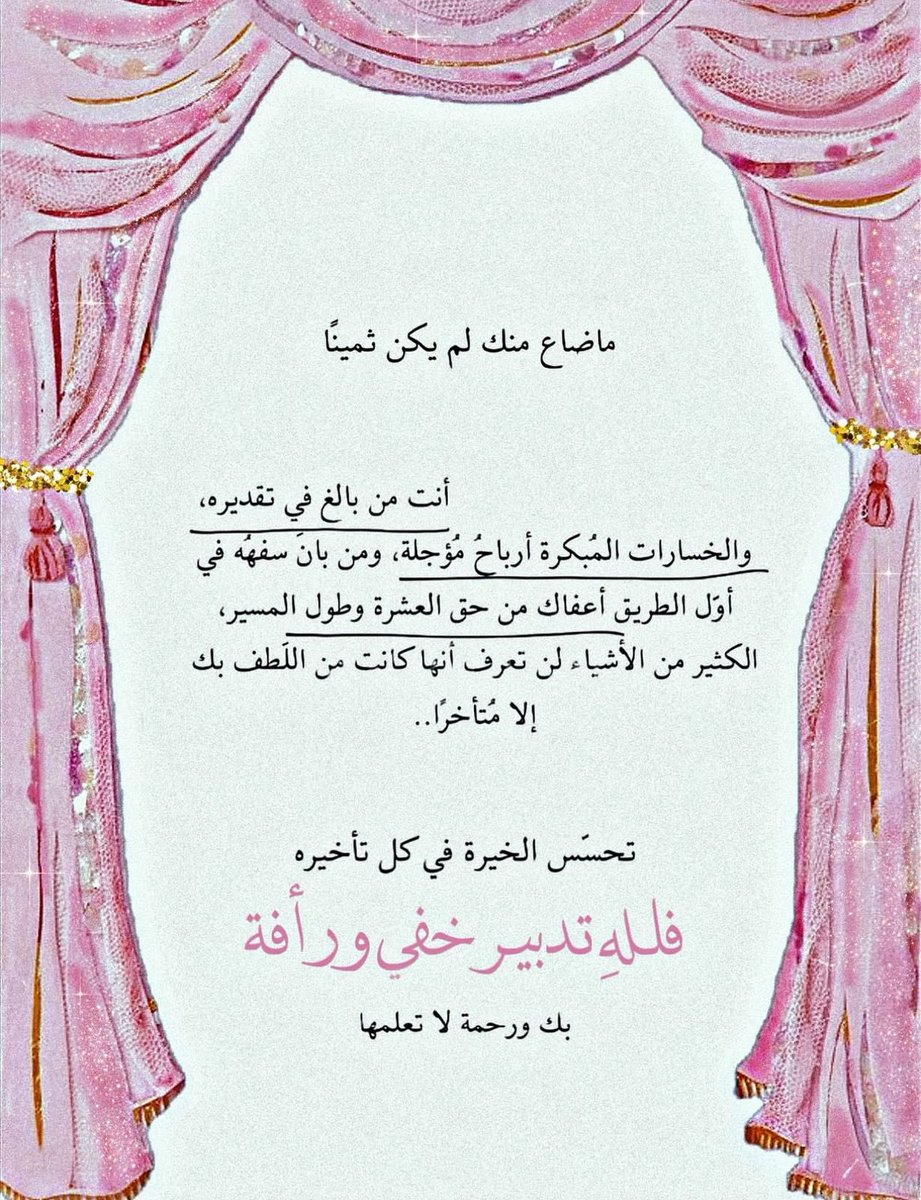 ماضاع منك لم يكن ثمينًا
أنت من بالغ في تقديره،
والخسارات المُبكرة أرباحُ مُؤجلة، ومن بانَ سفههُ في
أوّل الطريق أعفاك من حق العشرة وطول المسير،
الكثير من الأشياء لن تعرف أنها كانت من اللَطف بك
إلا مُتأخرًا..
تحسّس الخيرة في كل تأخيره
فللهِ تدبير خفي ورأفة
بك ورحمة لا تعلمها